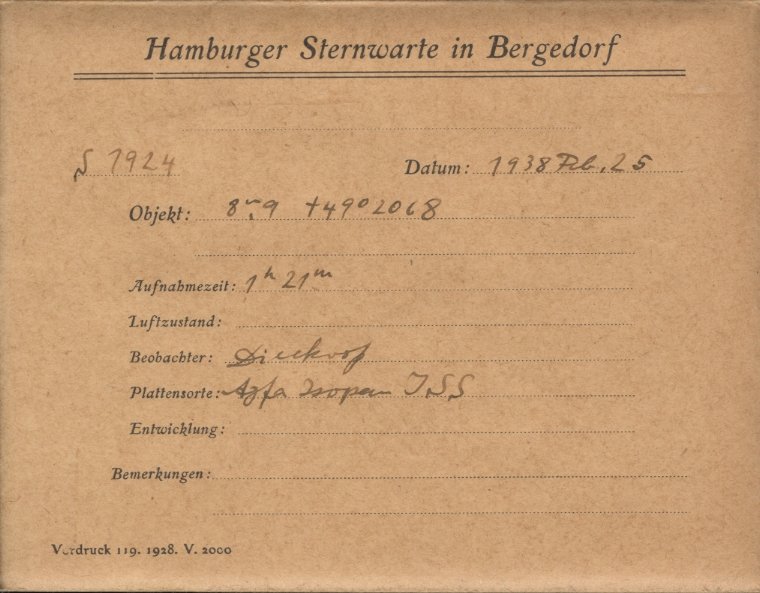 Hamburger Sternwarte in Bergedorf
S 1924 Datum: 1938 Feb. 25
Objekt: 8ᵐ.9 +49°2068
Aufnahmezeit: 1ʰ 21ᵐ
Luftzustand:
Beobachter: Dieckvoß
Plattensorte: Agfa Isopan ISS
Entwicklung:
Bemerkungen:
Vordruck 119. 1928. V. 2000